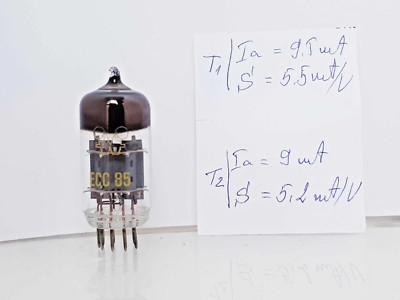 ECC 85
T1 Ia = 9.5 mA
S = 5.5 mA/V
T2 Ia = 9 mA
S = 5,2 mA/V